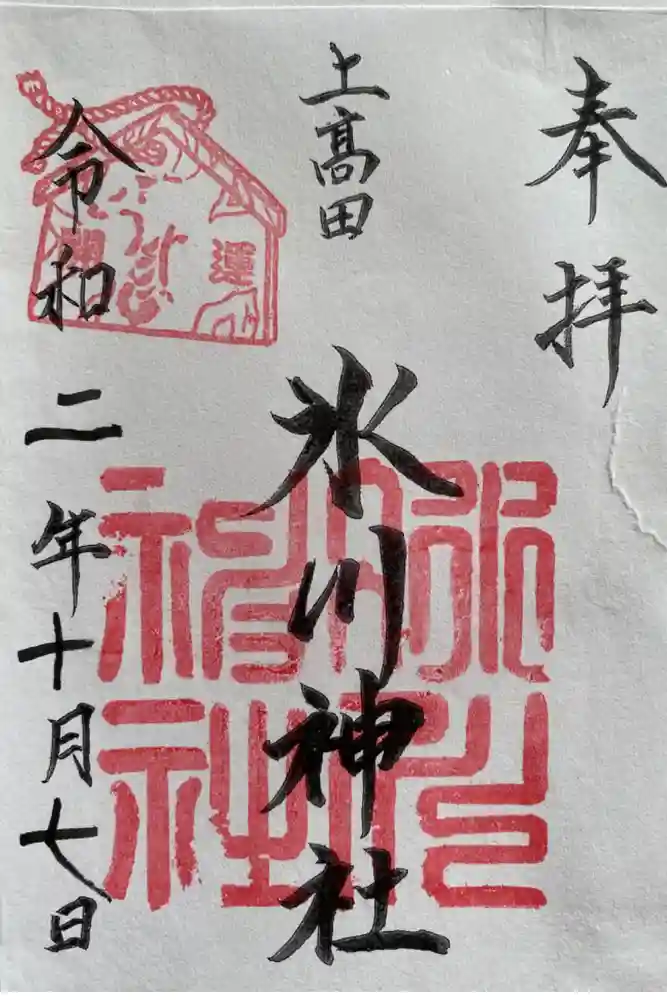 奉拝
上高田
氷川神社
令和二年十月七日
開運
氷川神社